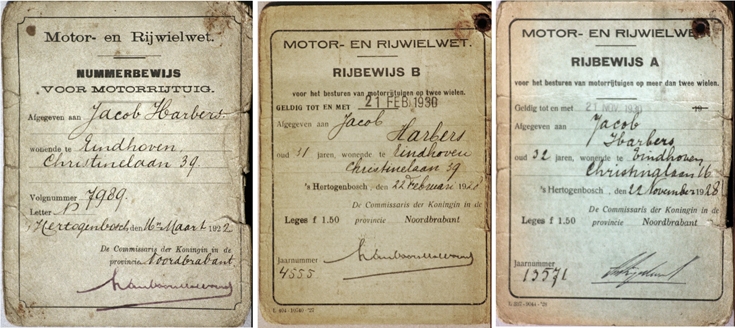 Motor- en Rijwielwet.
NUMMERBEWIJS
VOOR MOTORRIJTUIG.
Afgegeven aan Jacob Harbers
wonende te Eindhoven,
Christinelaan 39.
Volgnummer 7989
Letter N
's Hertogenbosch, den 16en Maart 1922
De Commissaris der Koningin in de
provincie Noordbrabant
MOTOR- EN RIJWIELWET.
RIJBEWIJS B
voor het besturen van motorrijtuigen op twee wielen.
GELDIG TOT EN MET 21 FEB. 1930
Afgegeven aan Jacob
Harbers
oud 31 jaren, wonende te Eindhoven
Christinelaan 39
's Hertogenbosch, den 22 Februari 192
De Commissaris der Koningin in de
Leges f 1.50 provincie Noordbrabant
Jaarnummer
4555
MOTOR- EN RIJWIELWET.
RIJBEWIJS A
voor het besturen van motorrijtuigen op meer dan twee wielen.
Geldig tot en met 21 NOV. 1930 19
Afgegeven aan
Jacob
Harbers
oud 32 jaren, wonende te Eindhoven
Christinalaan 16
's Hertogenbosch, den 22 November 1928
De Commissaris der Koningin in de
Leges f 1.50 provincie Noordbrabant
Jaarnummer
13571